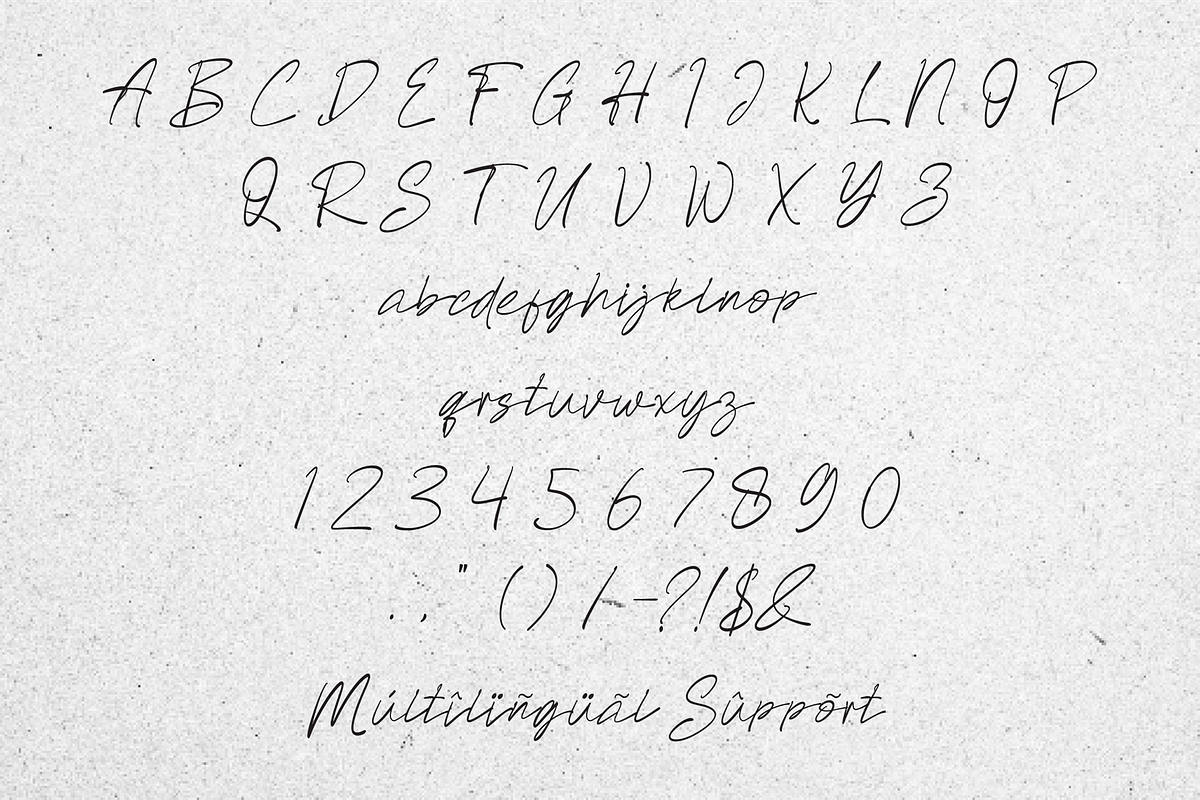 A B C D E F G H I J K L N O P
Q R S T U V W X Y Z
abcdefghijklnop
qrstuvwxyz
1 2 3 4 5 6 7 8 9 0
. , " ( ) / - ? ! $ &
Múltîlïñgüãl Sûppõrt